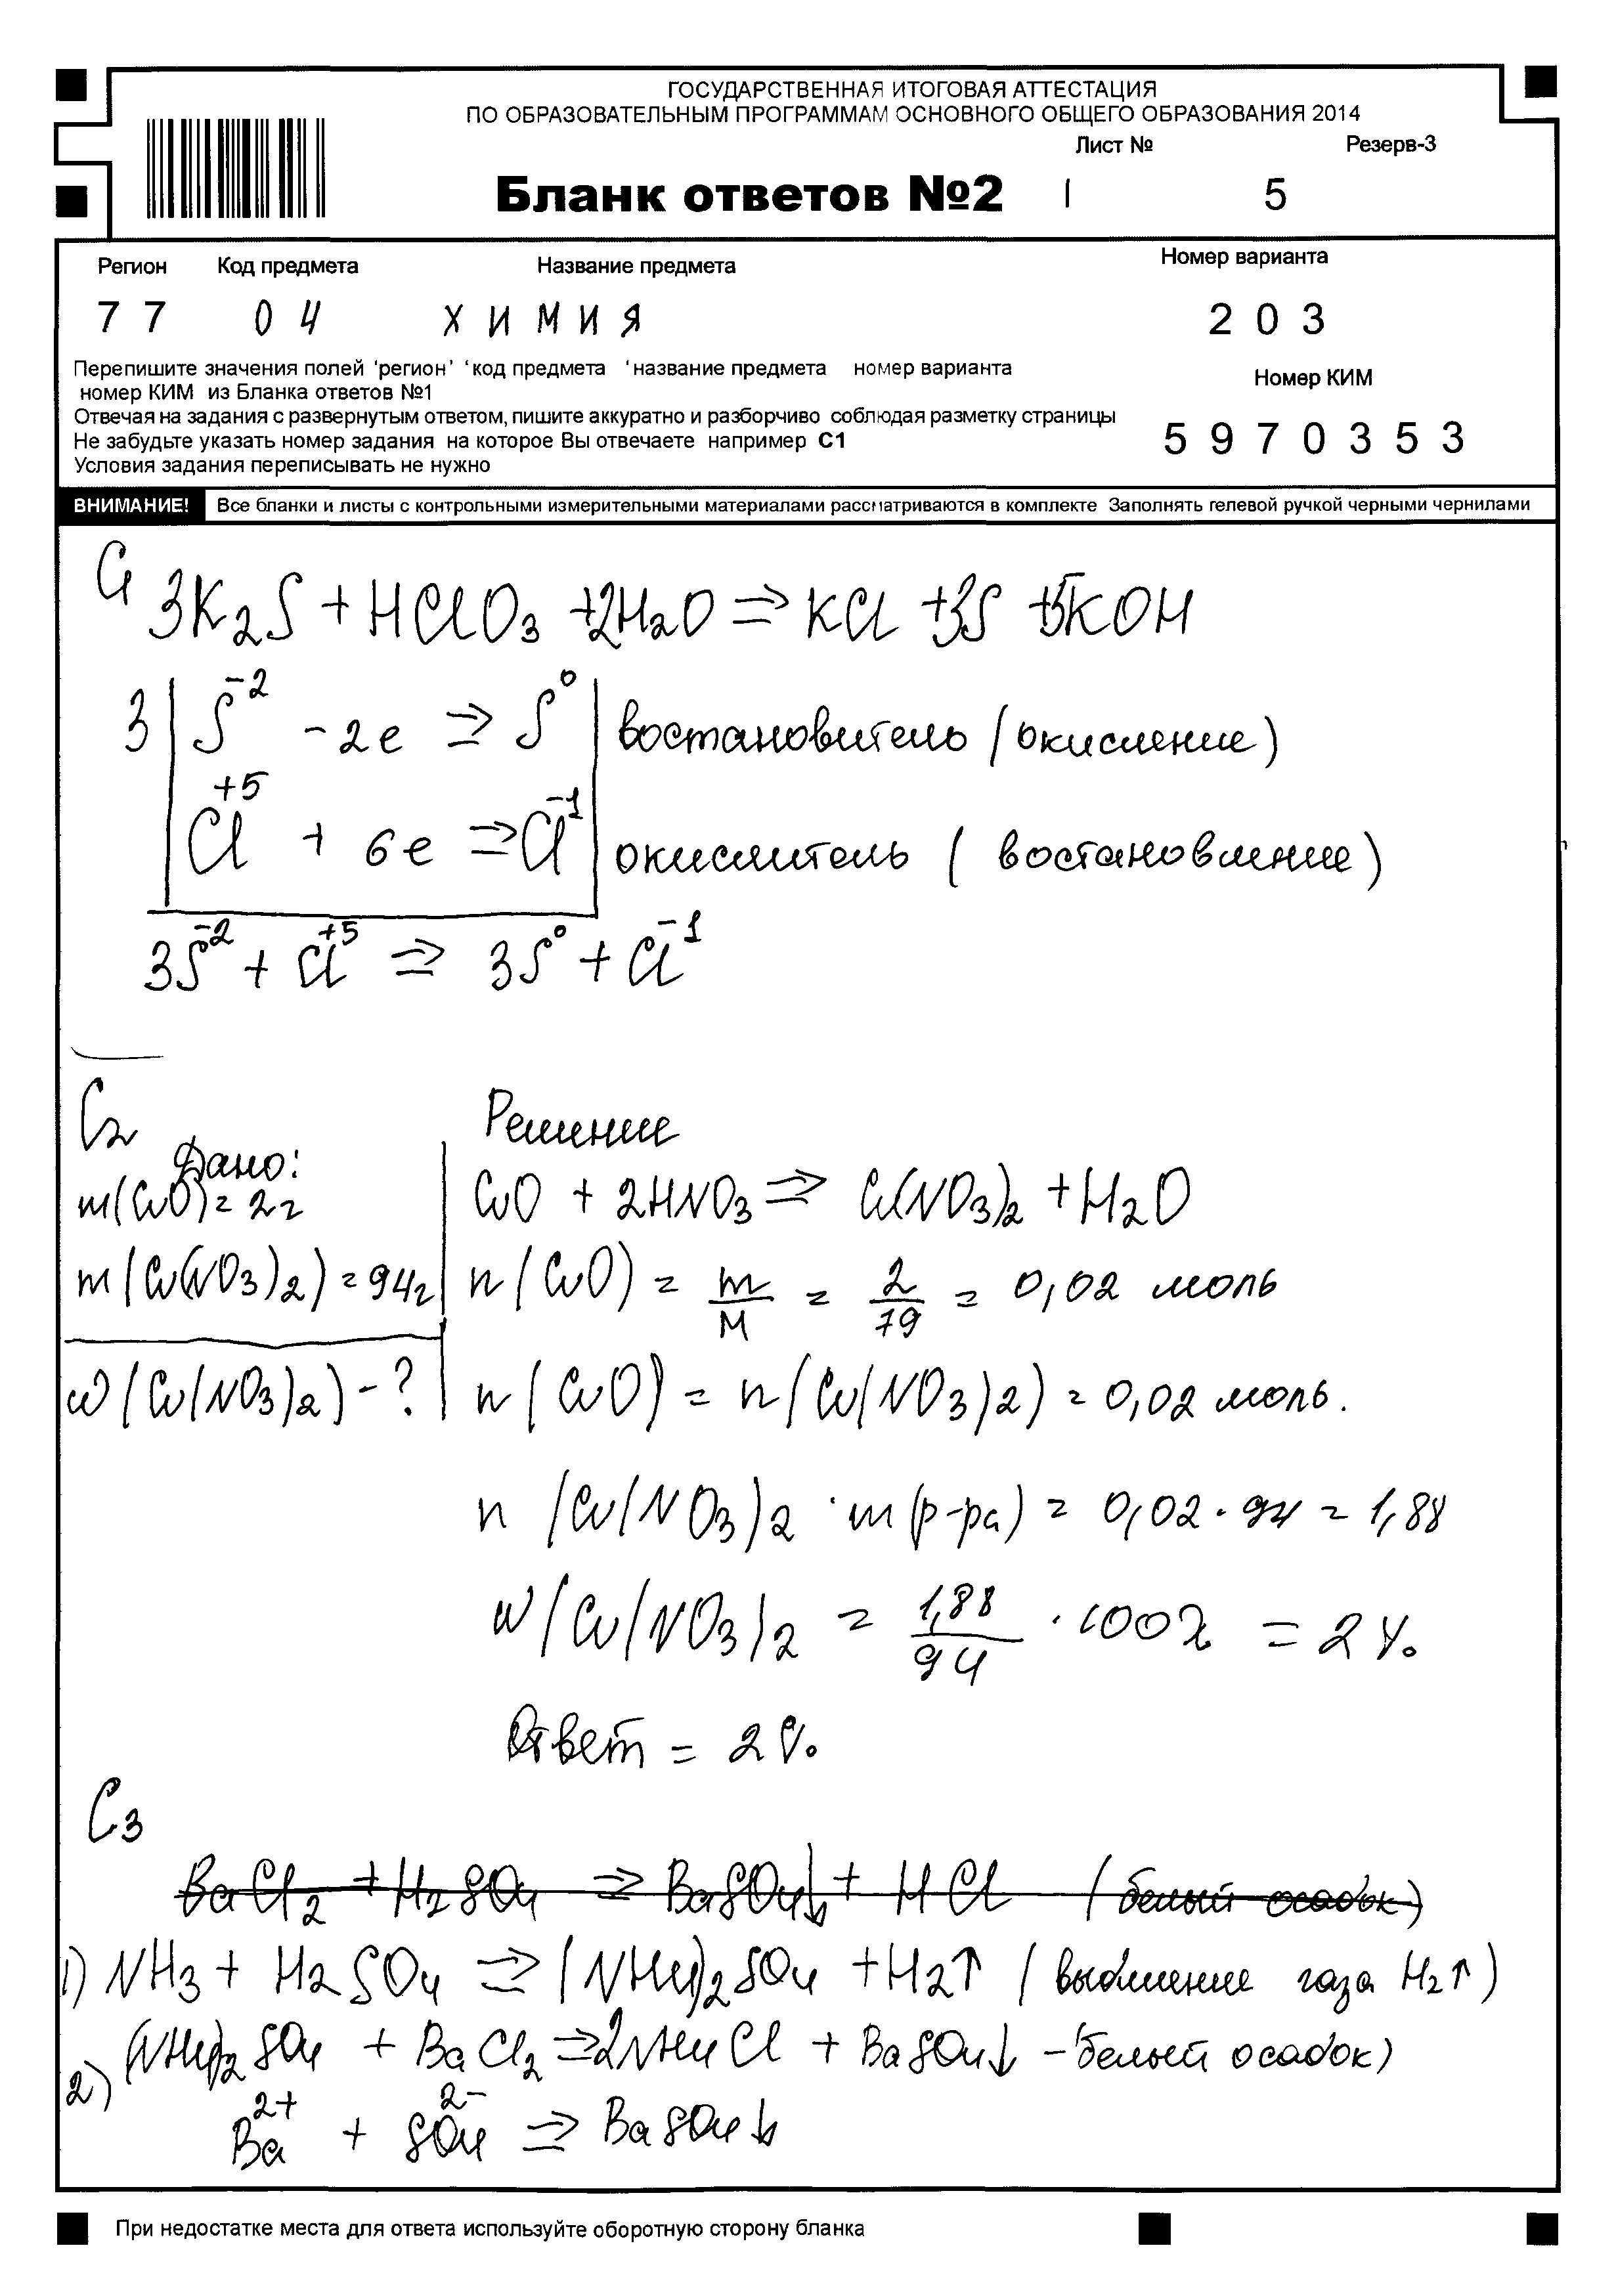 ГОСУДАРСТВЕННАЯ ИТОГОВАЯ АТТЕСТАЦИЯ
ПО ОБРАЗОВАТЕЛЬНЫМ ПРОГРАММАМ ОСНОВНОГО ОБЩЕГО ОБРАЗОВАНИЯ 2014
Лист № Резерв-3
Бланк ответов №2 1 5
Регион Код предмета Название предмета Номер варианта
77 04 ХИМИЯ 203
Перепишите значения полей 'регион' 'код предмета 'название предмета номер варианта
номер КИМ из Бланка ответов №1
Номер КИМ
Отвечая на задания с развернутым ответом, пишите аккуратно и разборчиво соблюдая разметку страницы
Не забудьте указать номер задания на которое Вы отвечаете например С1
5970353
Условия задания переписывать не нужно
ВНИМАНИЕ! Все бланки и листы с контрольными измерительными материалами рассматриваются в комплекте Заполнять гелевой ручкой черными чернилами
C1 3K₂S + HClO₃ + 2H₂O ⇒ KCl + 3S + 5KOH
3 | S⁻² - 2e ⇒ S⁰ | востановитель (окисление)
| Cl⁺⁵ + 6e ⇒ Cl⁻¹ | окислитель ( востановление)
3S⁻² + Cl⁺⁵ ⇒ 3S⁰ + Cl⁻¹
C2
Дано:
m(CuO) = 2г
m(Cu(NO₃)₂) = 94г
ω(Cu(NO₃)₂) - ?
Решение
CuO + 2HNO₃ ⇒ Cu(NO₃)₂ + H₂O
n(CuO) = m/M = 2/79 = 0,02 моль
n(CuO) = n(Cu(NO₃)₂) = 0,02 моль.
n (Cu(NO₃)₂ · m(р-ра) = 0,02 · 94 = 1,88
w(Cu(NO₃)₂ = 1,88/94 · 100% = 2%
Ответ = 2%
C3
BaCl₂ + H₂SO₄ ⇒ BaSO₄↓ + HCl (белый осадок)
1) NH₃ + H₂SO₄ ⇒ (NH₄)₂SO₄ + H₂↑ (выдление газа H₂↑)
2) (NH₄)₂SO₄ + BaCl₂ ⇒ 2NH₄Cl + BaSO₄↓ - белый осадок)
Ba²⁺ + SO₄²⁻ ⇒ BaSO₄↓
При недостатке места для ответа используйте оборотную сторону бланка